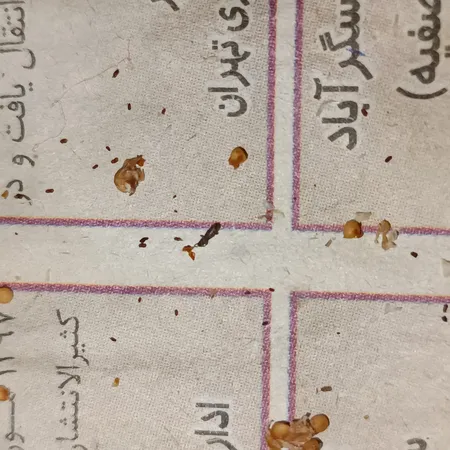 انتقال یافت و در
ری تهران
سگر آباد
صفیه)
۱۳۹۷
کثیرالانتشار
ادار